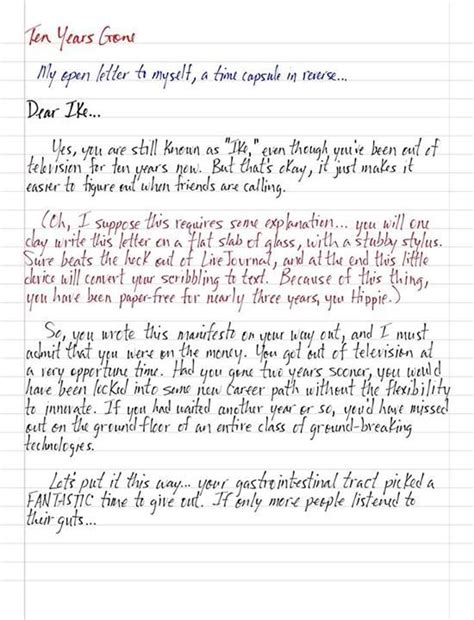 Ten Years Gone
My open letter to myself, a time capsule in reverse...
Dear Ike...
Yes, you are still known as "Ike," even though you've been out of
television for ten years now. But that's okay, it just makes it
easier to figure out when friends are calling.
(Oh, I suppose this requires some explanation... you will one
day write this letter on a flat slab of glass, with a stubby stylus.
Sure beats the heck out of LiveJournal, and at the end this little
device will convert your scribbling to text. Because of this thing,
you have been paper-free for nearly three years, you Hippie.)
So, you wrote this manifesto on your way out, and I must
admit that you were on the money. You got out of television at
a very opportune time. Had you gone two years sooner, you would
have been locked into some new career path without the flexibility
to innovate. If you had waited another year or so, you'd have missed
out on the ground floor of an entire class of ground-breaking
technologies.
Let's put it this way... your gastrointestinal tract picked a
FANTASTIC time to give out. If only more people listened to
their guts...